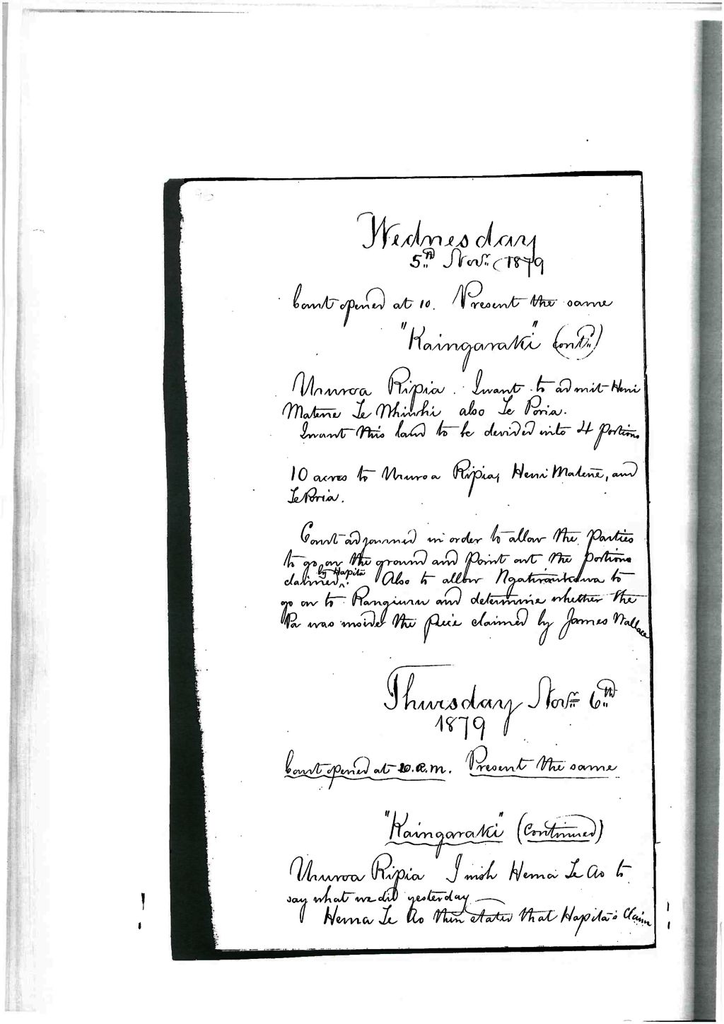 Wednesday
5th Novr. 1879
Court opened at 10. Present the same
"Kaingaraki" (contn)
Ururoa Ripia. I want to admit Heni
Matene Te Whiwhi also Te Poria.
I want this land to be devided into 4 portions
10 acres to Ururoa Ripia, Heni Matene, and
Te Poria.
Court adjourned in order to allow the Parties
to go on the ground and Point out the portions
claimed by Hapita. Also to allow to
go on to Rangiuru and determine whether the
Pa was inside the piece claimed by James Wallace
Thursday Novr 6th
1879
Court opened at 10.a.m. Present the same
"Kaingaraki" (Continued)
Ururoa Ripia I wish Hema Te Ao to
say what we did yesterday
Hema Te Ao then states that Hapita's Claim